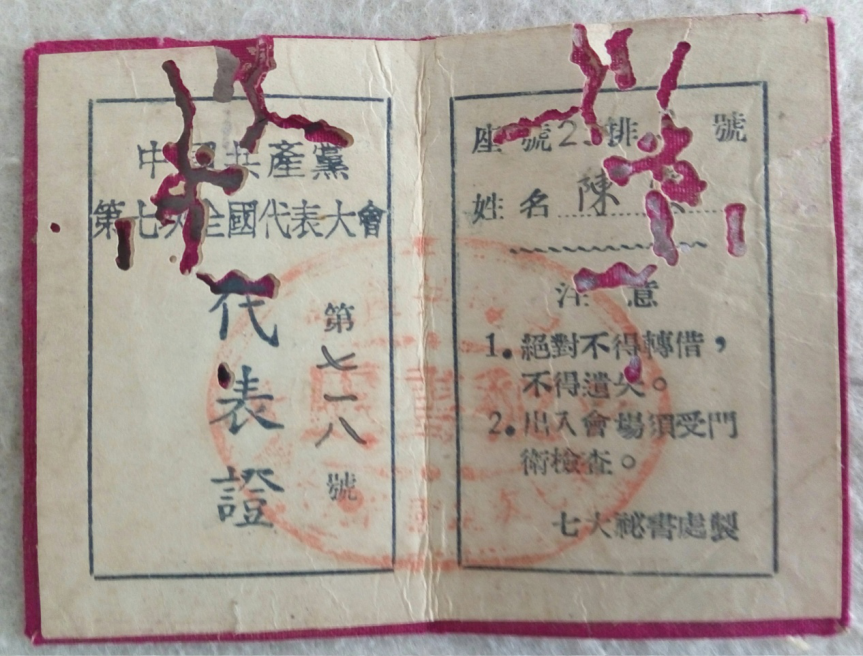 中國共產黨
第七次全國代表大會
代表證
第七一八號
座號2 排 號
姓名 陳
注意
1. 絕對不得轉借，
不得遺失。
2. 出入會場須受門
衛檢查。
七大祕書處製